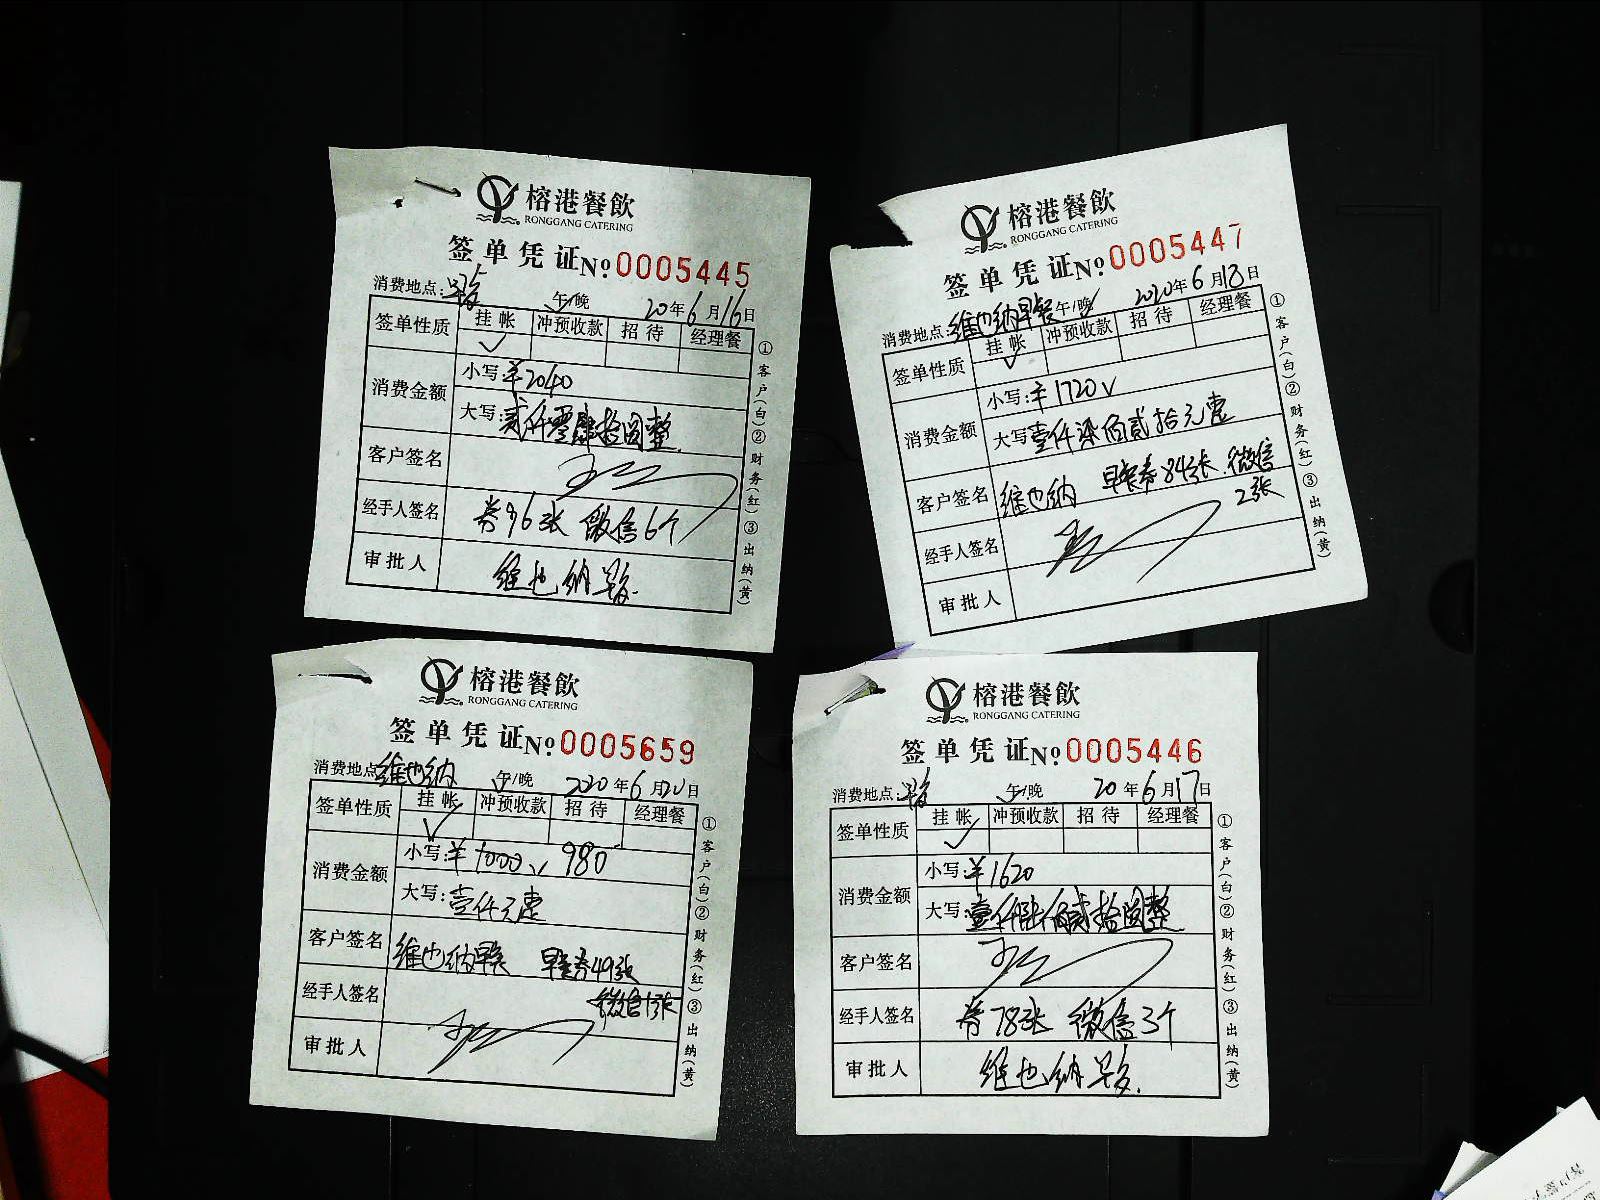 榕港餐飲
RONGGANG CATERING
签单凭证 No. 0005445
消费地点: 早餐 午/晚 20年6月16日
签单性质 挂帐 冲预收款 招待 经理餐
✓
消费金额 小写:¥2040
大写:贰仟零肆拾圆整
客户签名
经手人签名 券96张 微信6个
审批人 维也纳早餐.
①客户(白)②财务(红)③出纳(黄)
榕港餐飲
RONGGANG CATERING
签单凭证 No. 0005447
消费地点: 维也纳早餐 午/晚 2020年6月18日
签单性质 挂帐 冲预收款 招待 经理餐
✓
消费金额 小写:¥1720
大写 壹仟柒佰贰拾元
客户签名 维也纳 早餐券84张.微信
2张
经手人签名
审批人
①客户(白)②财务(红)③出纳(黄)
榕港餐飲
RONGGANG CATERING
签单凭证 No. 0005659
消费地点 维也纳 午/晚 2020年6月20日
签单性质 挂帐 冲预收款 招待 经理餐
✓
消费金额 小写:¥1000 980
大写:壹仟元
客户签名 维也纳早餐 早餐券49张
微信1张
经手人签名
审批人
①客户(白)②财务(红)③出纳(黄)
榕港餐飲
RONGGANG CATERING
签单凭证 No. 0005446
消费地点: 早餐 午/晚 20年6月17日
签单性质 挂帐 冲预收款 招待 经理餐
✓
消费金额 小写:¥1620
大写:壹仟陆佰贰拾圆整
客户签名
经手人签名 券78张 微信3个
审批人 维也纳早餐.
①客户(白)②财务(红)③出纳(黄)